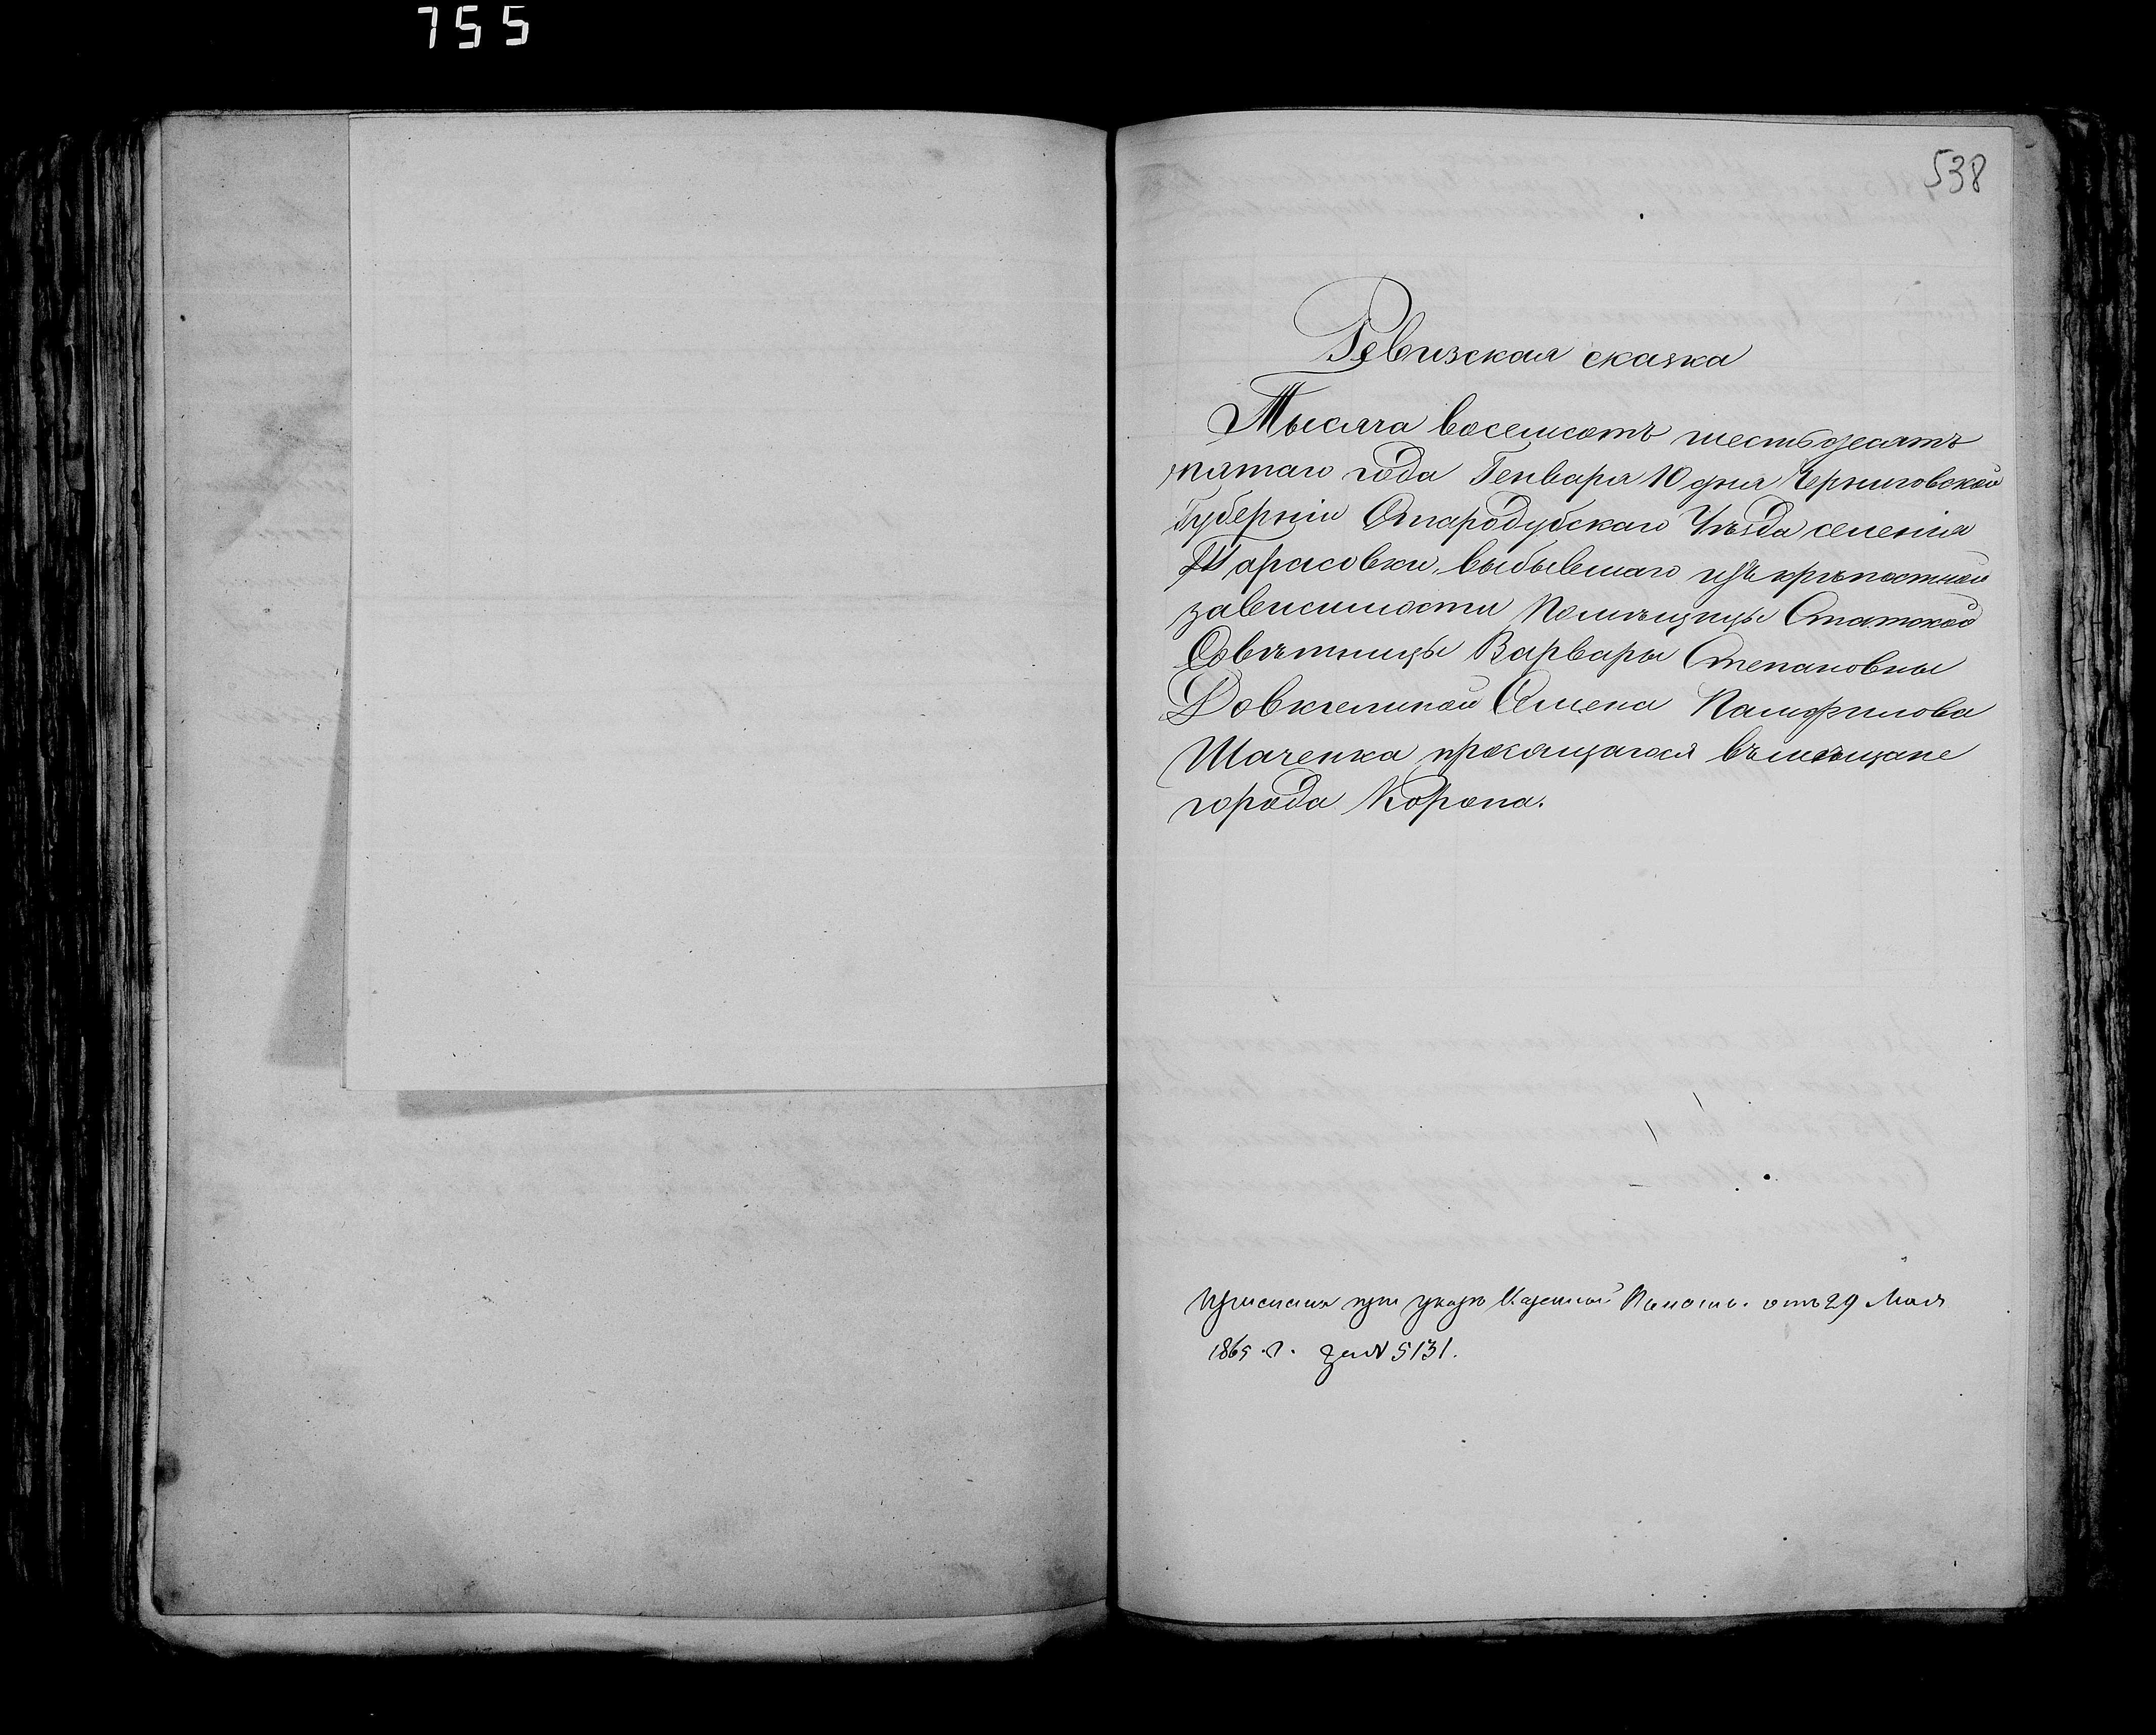 755
538
Ревизская сказка
Тысяча восемсотъ шестьдесятъ
пятаго года Генваря 10 дня Черниговской
Губерніи Стародубскаго Уѣзда селенія
Тарасовки, выбывшаго изъ крѣпостной
зависимости Помѣщицы Статской
Совѣтницы Варвары Степановны
Семена Памфилова
Шаченка просящагося въ мѣщане
города Коропа.
при указѣ Казенной Палаты. отъ 29 Мая
1865 г. за № 5131.